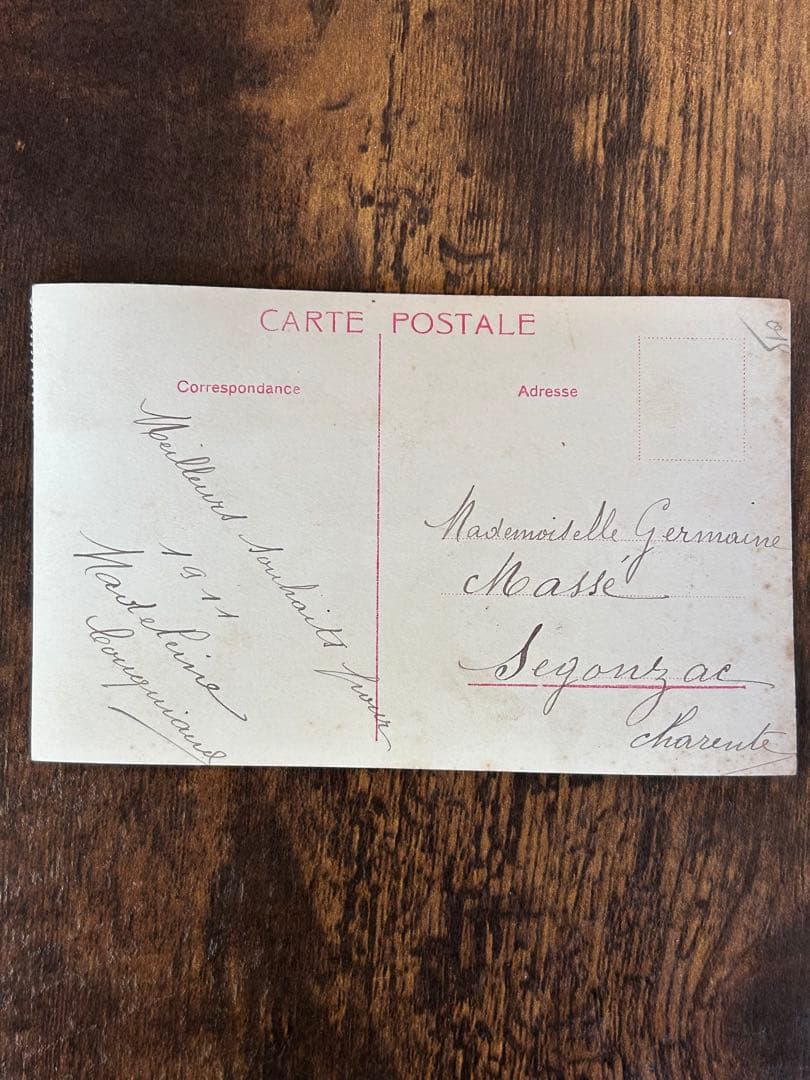 CARTE POSTALE
Correspondance
Meilleurs souhaits pour
1911
Madeleine
Adresse
Mademoiselle Germaine
Massé
Segonzac
Charente